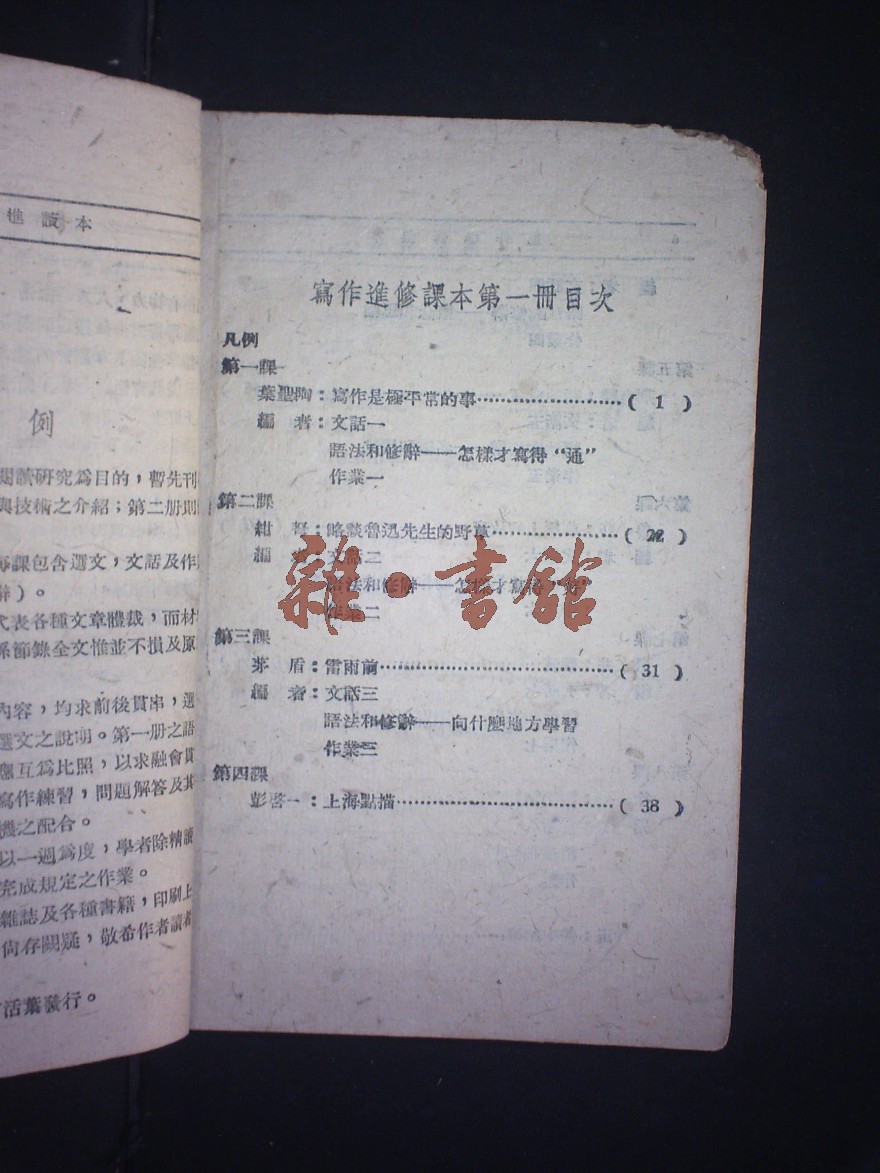 進讀本
例
閱讀研究爲目的，暫先刊
與技術之介紹；第二册則
每課包含選文，文話及作
辭）。
代表各種文章體裁，而材
係節錄全文惟並不損及原
內容，均求前後貫串，選
選文之說明。第一册之語
應互爲比照，以求融會貫
寫作練習，問題解答及其
機之配合。
以一週爲度，學者除精讀
完成規定之作業。
雜誌及各種書籍，印刷上
尙存闕疑，敬希作者讀者
活葉發行。
寫作進修課本第一冊目次
凡例
第一課
葉聖陶：寫作是極平常的事……………………（ 1 ）
編　者：文話一
語法和修辭——怎樣才寫得“通”
作業一
第二課
紺　弩：略談魯迅先生的野草…………………（ 22 ）
編　者：文話二
語法和修辭——怎樣才寫得
作業二
第三課
茅　盾：雷雨前…………………………………（ 31 ）
編　者：文話三
語法和修辭——向什麼地方學習
作業三
第四課
彭啓一：上海點描………………………………（ 38 ）
雜·書館